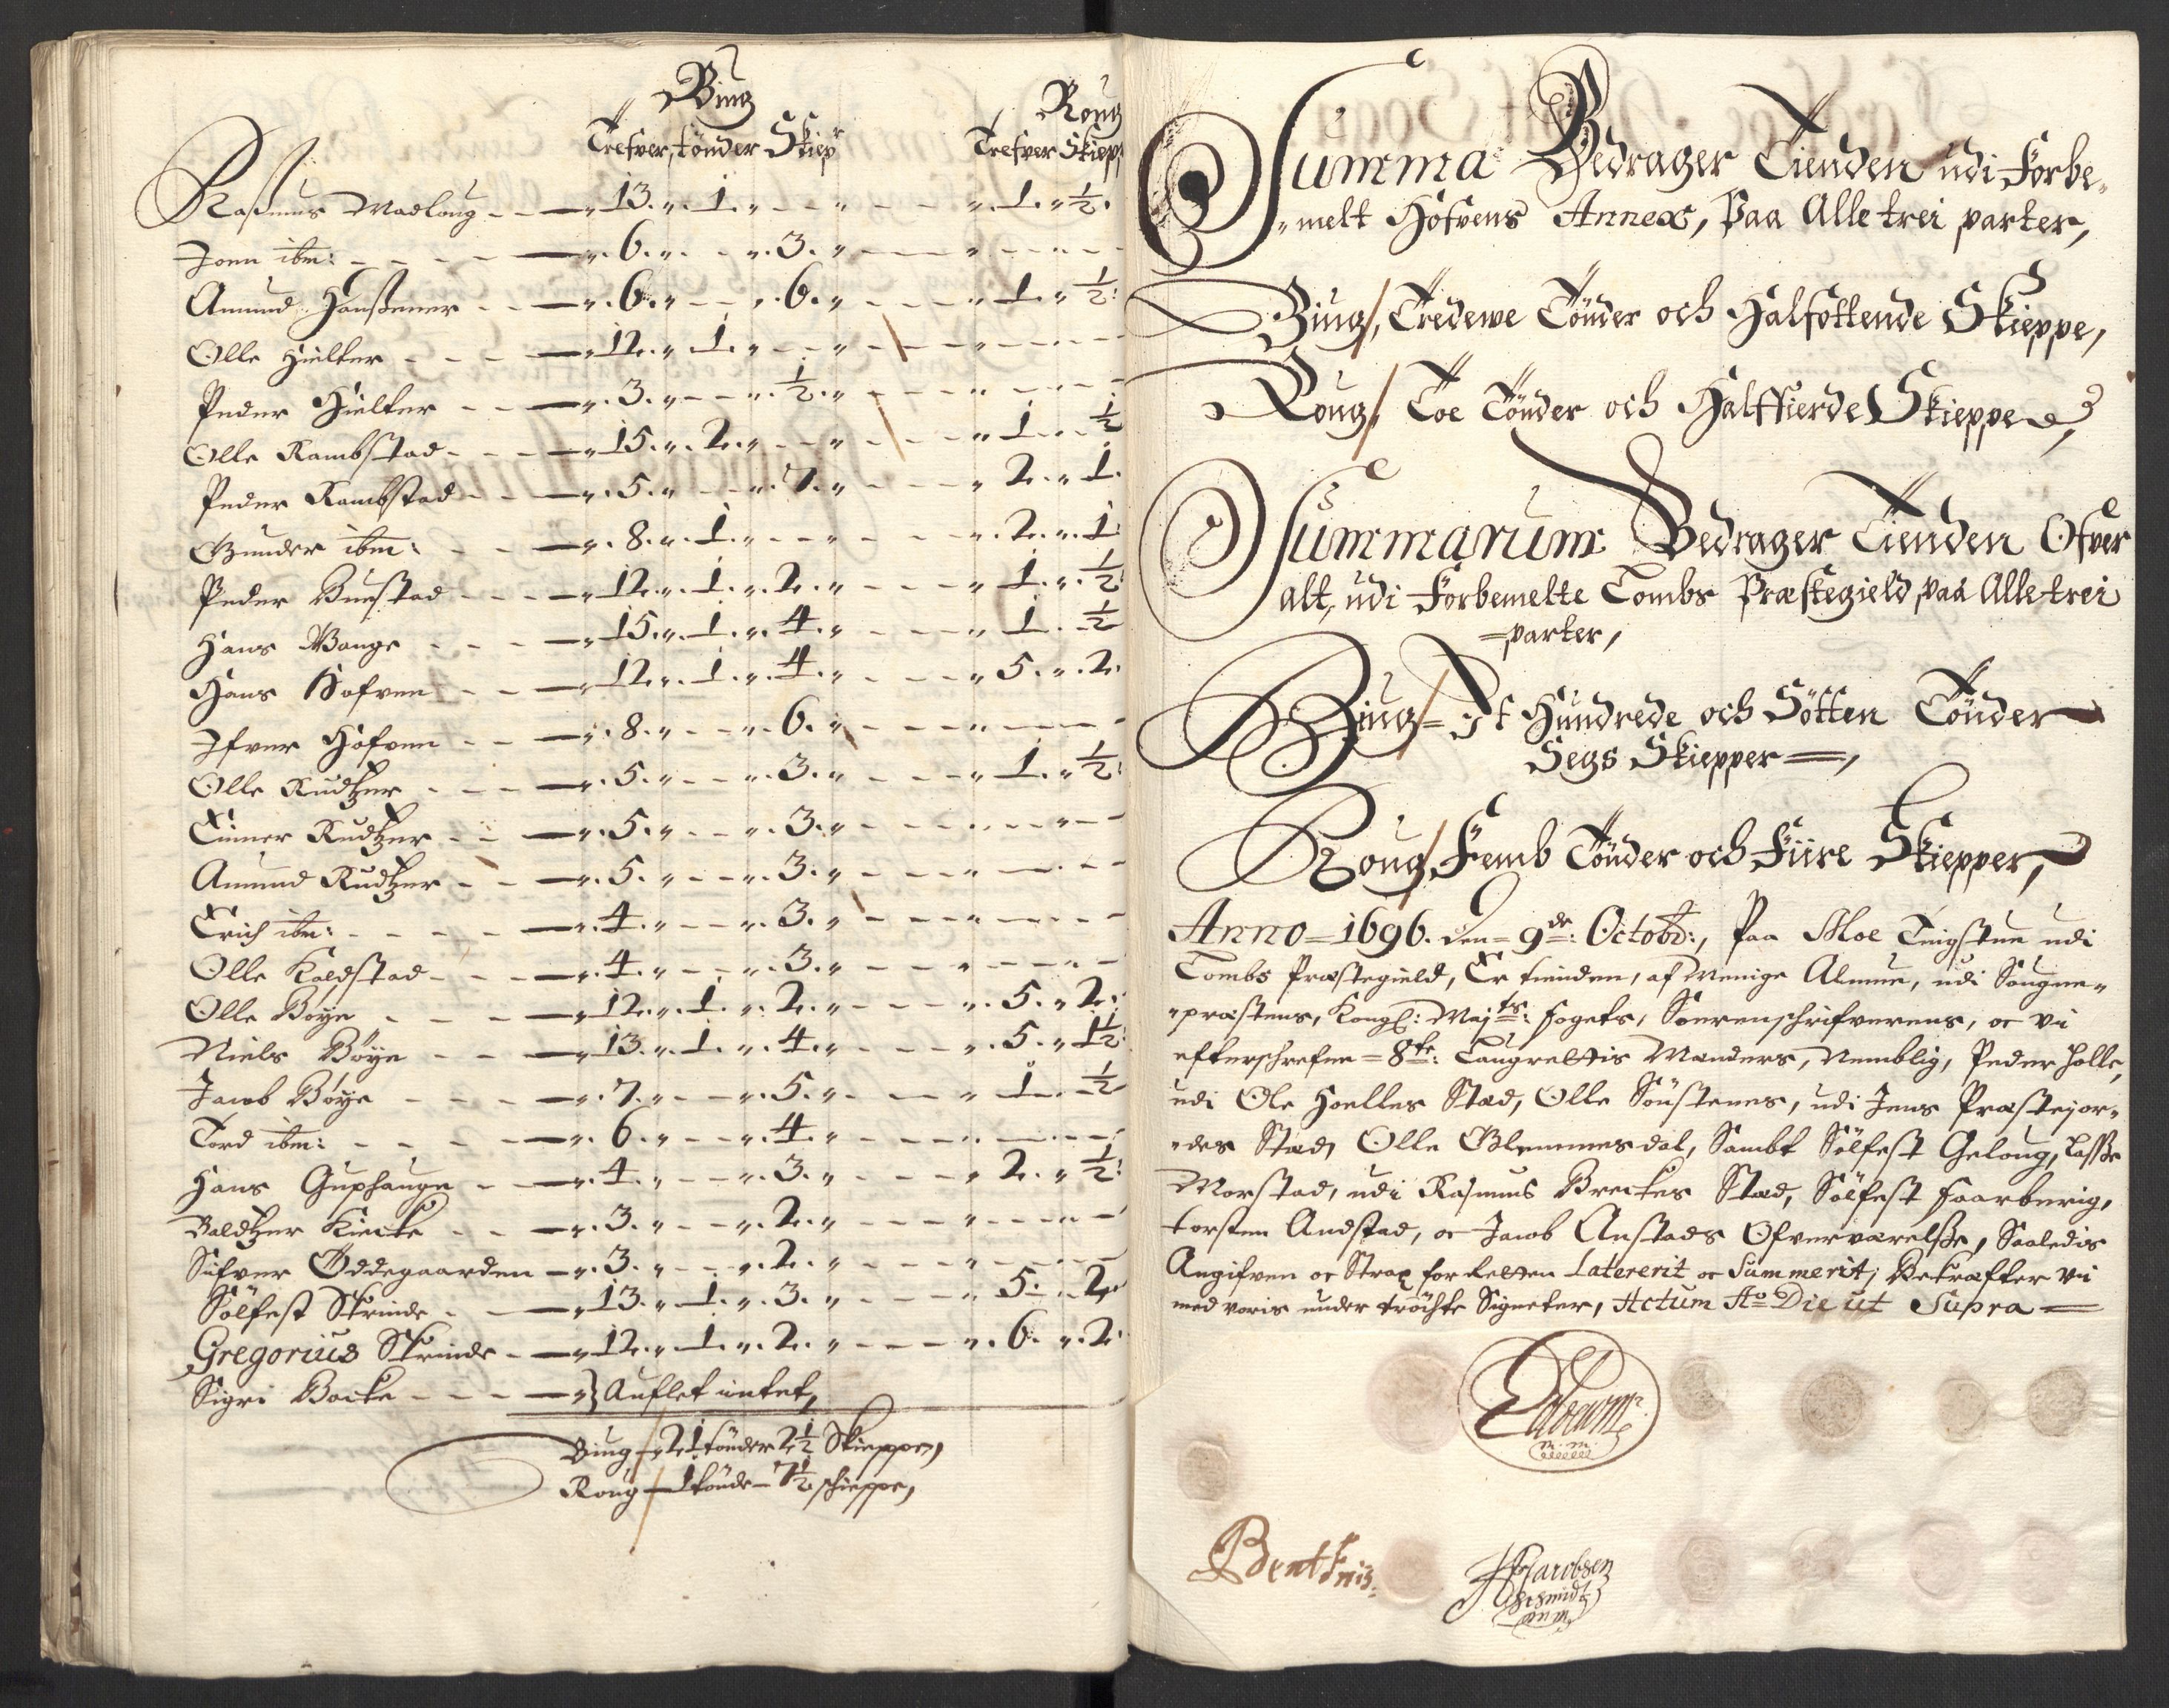 Biug
Roug
Trefver, tönder Skiep
Trefver Skiep
Rasmus Madloug - - 13. 1. - - 1. ½.
Joen ibm: - - 6. - 3. - -
Amund Hanssener - - 6. - 6. - 1. ½:
Olle Hielter - - 12. 1. - - -
Peder Hielter - - 3. - ½. - -
Olle Rambstad - - 15. 2. - - 1. ½
Peder Rambstad - - 5. - 7. - 2. 1.
Gunder ibm: - - 8. 1. - - 2. 1
Peder Buestad - - 12. 1. 2. - 1. ½
Hans Vange - - 15. 1. 4. - 1. ½
Hans Hofven - - 12. 1. 4. - 5. 2.
Ifver Hofven - - 8. - 6. - -
Olle Rudtzer - - 5. - 3. - 1. ½
Einer Rudtzer - - 5. - 3. - -
Amund Rudtzer - - 5. - 3. - -
Erich ibm: - - 4. - 3. - -
Olle Koldstad - - 4. - 3. - -
Olle Böye - - 12. 1. 2. - 5. 2.
Niels Böye - - 13. 1. 4. - 5. 1½
Jacob Böye - - 7. - 5. - 1. ½
Tord ibm: - - 6. - 4. - -
Hans Guphauge - - 4. - 3. - 2. ½
Baldtzer Kircke - - 3. - 2. - -
Sifver Öddegaarden - 3. - 2. - -
Sölfest Skrinde - - 13. 1. 3. - 5. 2.
Gregorius Skrinde - - 12. 1. 2. - 6. 2
Sigri Backe - - - } Auflet intet,
Biug - 21 tönder 2½ Skieppe,
Roug - 1 tönde - 7½ schieppe,
Summa Bedrager Tienden udi Forbe-
-melt Hofvens Annex, Paa Alle trei parter,
Biug, Tredewe Tönder och Halfottende Skieppe,
Roug, Toe Tönder och Halffierde Skieppe
Summarum Bedrager Tienden Ofver
alt, udi Forbemelte Tombs Præstegield paa Alle trei
parter,
Biug = It Hundrede och Sötten Tönder
Segs Skiepper =,
Roug Femb Tönder och Fiire Skiepper,
Anno = 1696. den = 9de: Octobr:, Paa Moe Tingstue udi
Tombs Præstegield, Er tienden, af Menige Almue, udi Sougne-
-præstens, Kongl: Maj:ts: fogets, Sorenschrifverens, oc vii
efterschrefne = 8te: Laugrettis Mænders, Nemblig, Peder Holle,
udi Ole Hoelles Stæd, Olle Söustenes, udi Jens Præstejor-
-des Stæd, Olle Blemmesdal, Sambt Sölfest Geloug, Lasse
Morstad, udi Rasmus Breckes Stæd, Sölfest faarberig,
torsten Andstad, oc Jacob Anstads Ofverværelsse, Saaledis
Angifven oc Strax for Retten Latererit oc Summerit, Bekræfter Vii
med voris under tröchte Signeter, Actum Ao Die ut Supra =
m. m.
Bent Friis
Jacobsen
Schmidt
m m